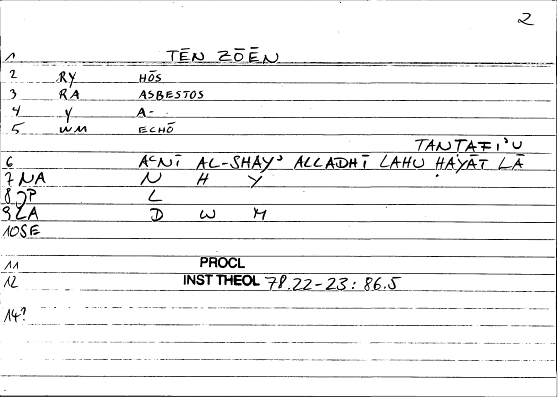 2
1 TĒN ZŌĒN
2 RY HŌS
3 RA ASBESTOS
4 Y A-
5 WM ECHŌ
TANṬAFI'U
6 AʿNĪ AL-SHAY' ALLADHĪ LAHU ḤAYĀT LĀ
7 NA N H Y
8 JP L
9 LA D W M
10 SE
11 PROCL
12 INST THEOL 78.22-23: 86.5
14?